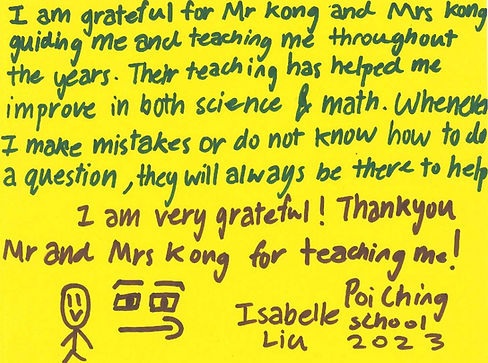 I am grateful for Mr Kong and Mrs Kong
guiding me and teaching me throughout
the years. Their teaching has helped me
improve in both science & math. Whenever
I make mistakes or do not know how to do
a question, they will always be there to help
I am very grateful! Thankyou
Mr and Mrs Kong for teaching me!
Isabelle Liu
Poi Ching School
2023